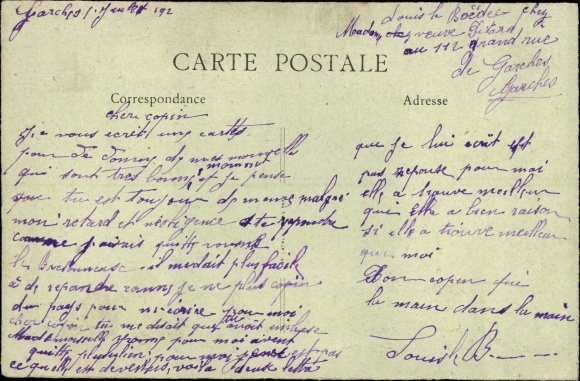 Garches 1 Juillet 192
Louis le Boëdec chez
Madame veuve Pitard
au 112 grand rue
de Garches
Garches
CARTE POSTALE
Correspondance
Adresse
cher copin
Je vous ecrit une cartes
pour de donnes de mes nouvelle
qui sont tres bonne moment et je pense
que tu est toujour de meme malgré
mon retard et négligence te repondre
comme j'avais quitté
les il medait plus facil
à de repondre je ne plus copin
du pays pour m'écrire pour moi
cher copin tu me disait que avait
Mademoiselle pour moi avant
quitté pour moi pense est pas
ce quelle est devenus, voila deux lettre
que je lui écrit est
pas reponse pour moi
elle a trouve meilleur
que Elle a bien raison
si elle a trouve meilleur
que moi
Ton copin qui
la main dans la main
Louis le B